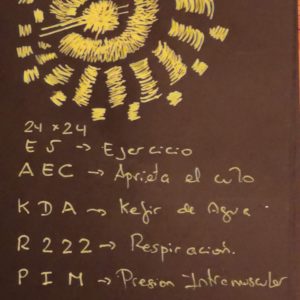 24 x 24
EJ → Ejercicio
AEC → Aprieta el culo
KDA → Kefir de Agua
R222 → Respiración.
PIM → Presion Intramuscular